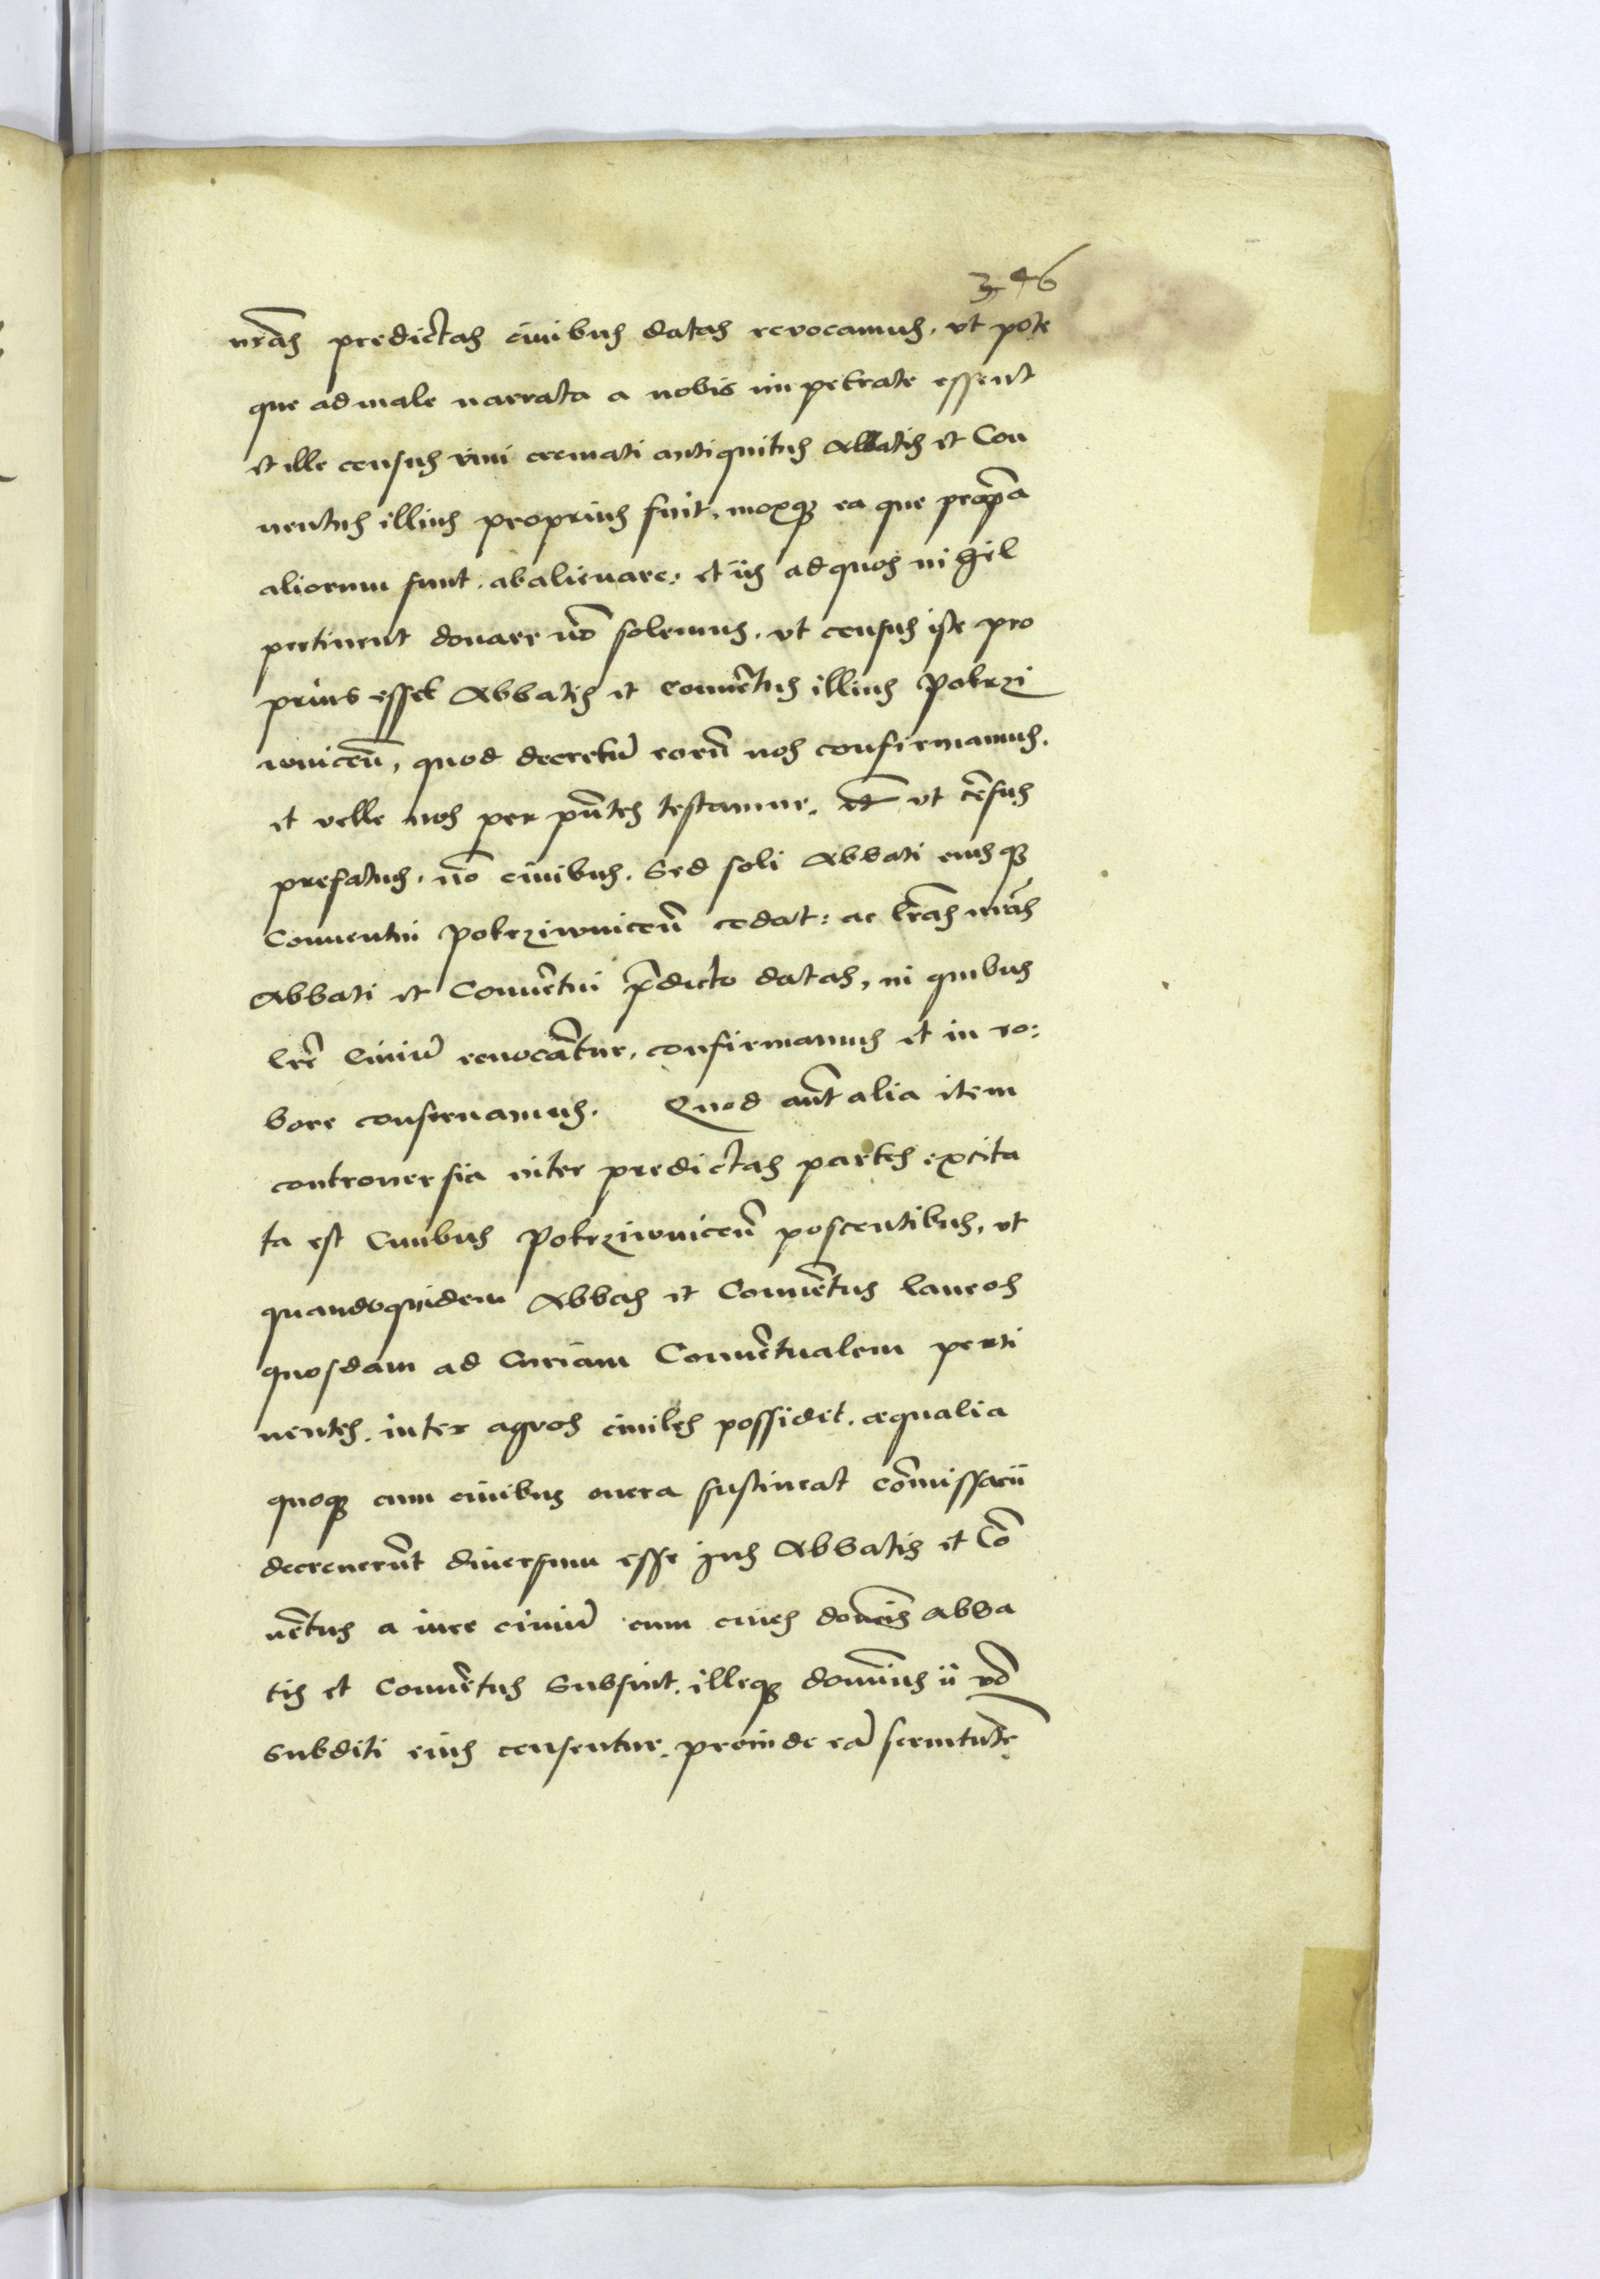 346
nr̃as predictas ciuibus datas revocamus, vt pote
que ad male narrata a nobis impetrate essent
et ille census vini cremati antiquitus Abbatis et Con
uentus illius proprius fuit, moxq3 ea que prop̃a
aliorum sunt, abalienare, et iis ad quos nihil
pertinent donare nõ solemus, vt census iste pro
prius esset Abbatis et Conuẽtus illius Pokrzi
wniceñ, quod decretũ eorũ nos confirmamus,
et velle nos per pñtes testamur, vt cẽsus
prefatus, nõ ciuibus, Sed soli Abbati eiusq3
Conuentui Pokrziwniceñ cedat: ac lr̃as nr̃as
Abbati et Conuẽtui p̃dicto datas, in quibus
lrẽ Ciuiũ reuocãtur, confirmamus et in ro:
bore conseruamus. Quod aũt alia item
controuersia inter predictas partes excita
ta est Ciuibus Pokrziwniceñ poscentibus, vt
quandoquidem Abbas et Conuẽtus laneos
quosdam ad Curiam Conuẽtualem perti
nentes, inter agros ciuiles possidet, æqualia
quoq3 cum ciuibus onera sustineat Cõmissarii
decreuerũt diuersum esse Jus Abbatis et Cõ
uẽtus a iure ciuiũ cum ciues donẽis Abba
tis et Conuẽtus Subsint, illeq3 dominus ii vẽ
subditi eius censentur, proinde eã seruitutẽ